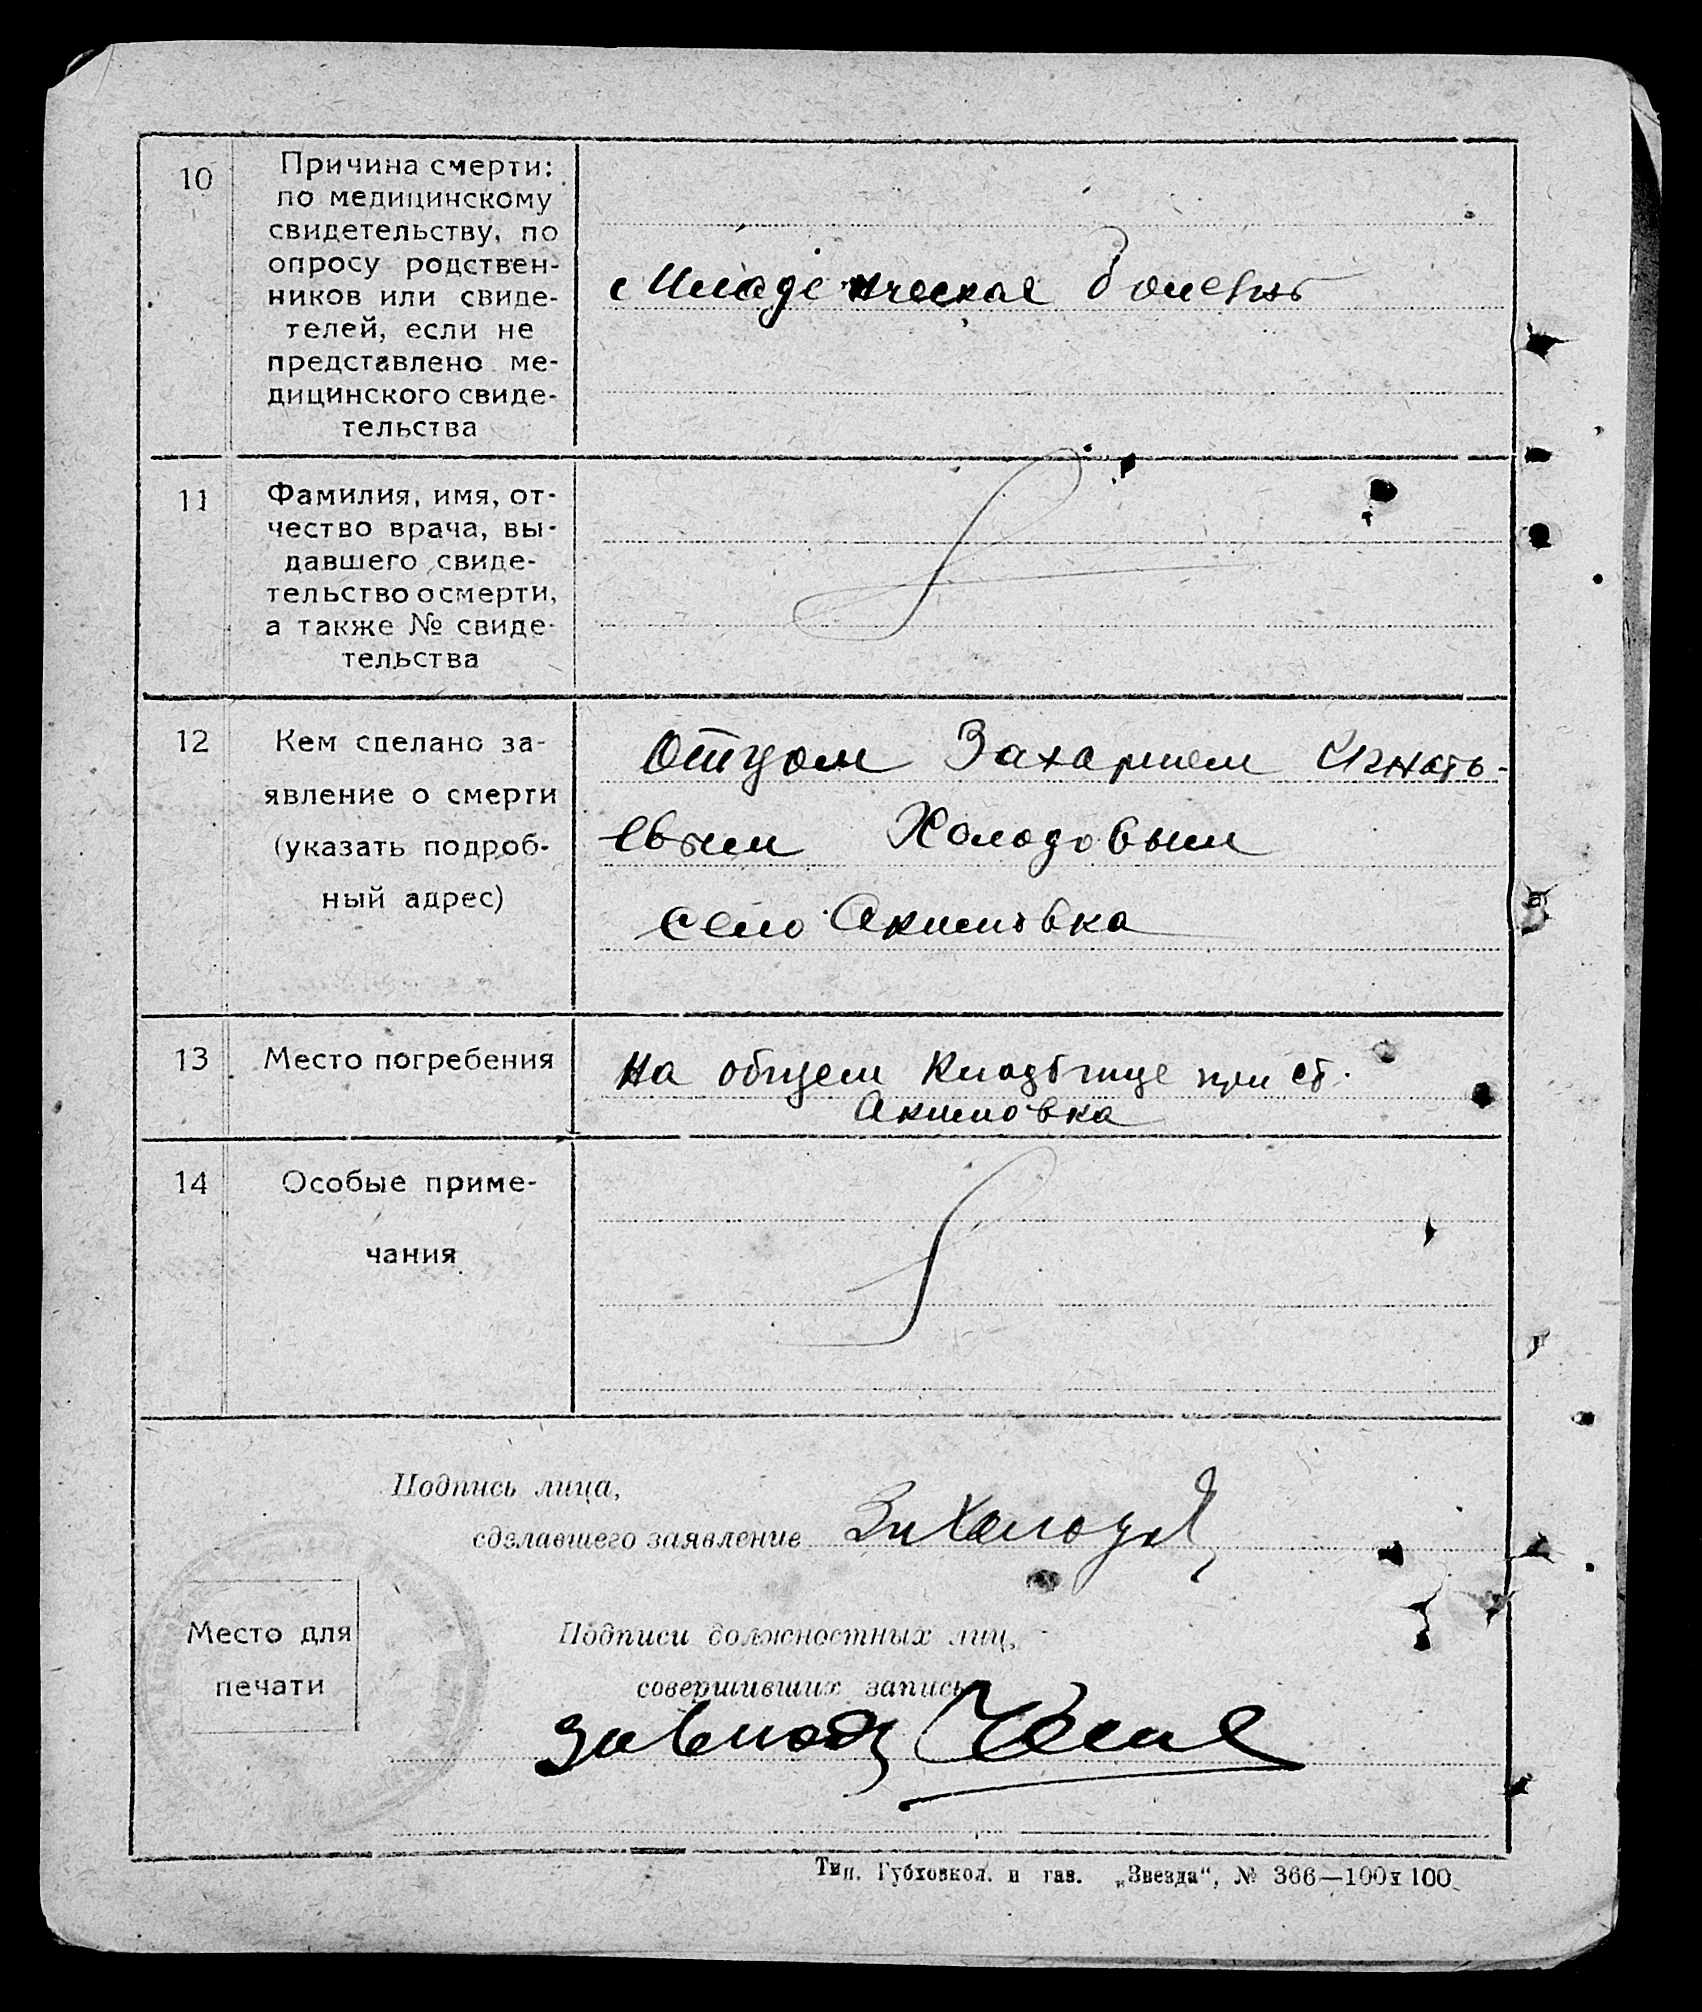 10
Причина смерти:
по медицинскому
свидетельству, по
опросу родствен-
ников или свиде-
телей, если не
представлено ме-
дицинского свиде-
тельства
Младенческая болезнь
11
Фамилия, имя, от-
чество врача, вы-
давшего свиде-
тельство о смерти,
а также № свиде-
тельства
12
Кем сделано за-
явление о смерти
(указать подроб-
ный адрес)
Отцом Захарием Игнать-
евым Холодовым
село Акимовка
13
Место погребения
на общем кладбище при ст.
Акимовка
14
Особые приме-
чания
Подпись лица,
сделавшего заявление
Место для
печати
Подписи должностных лиц,
совершивших запись
Тип. Губховкол. и газ. „Звезда“, № 366—100х100